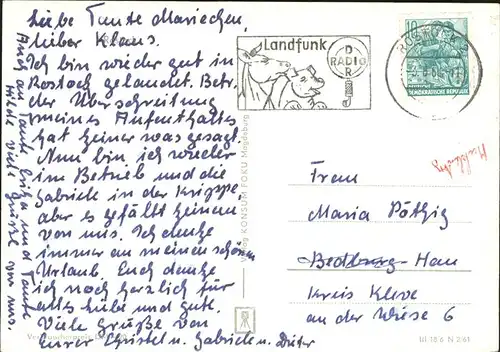 Liebe Tante Mariechen,
lieber Klaus.
Ich bin wieder gut in
Rostock gelandet. Betr.
der Überschreitung
meines Aufenthaltes
hat keiner was gesagt.
Nun bin ich wieder
im Betrieb und die
Gabriele in der Krippe,
aber es gefällt keinem
von uns. Ich denke
immer an meinen schönen
Urlaub. Euch danke
ich noch herzlich für
alles liebe und gute.
Viele Grüße von
Eurer Christel u. Gabriele u. Dieter
Auch an Tante und Tante
Hilde viele Grüße von uns.
Landfunk
RADIO
DDR
ROSTOCK
10
DEUTSCHE DEMOKRATISCHE REPUBLIK
KONSUM FOKU Magdeburg
Frau
Maria Pötzig
Bedburg-Hau
Kreis Kleve
an der Wiese 6
III 18 6 N 2/61